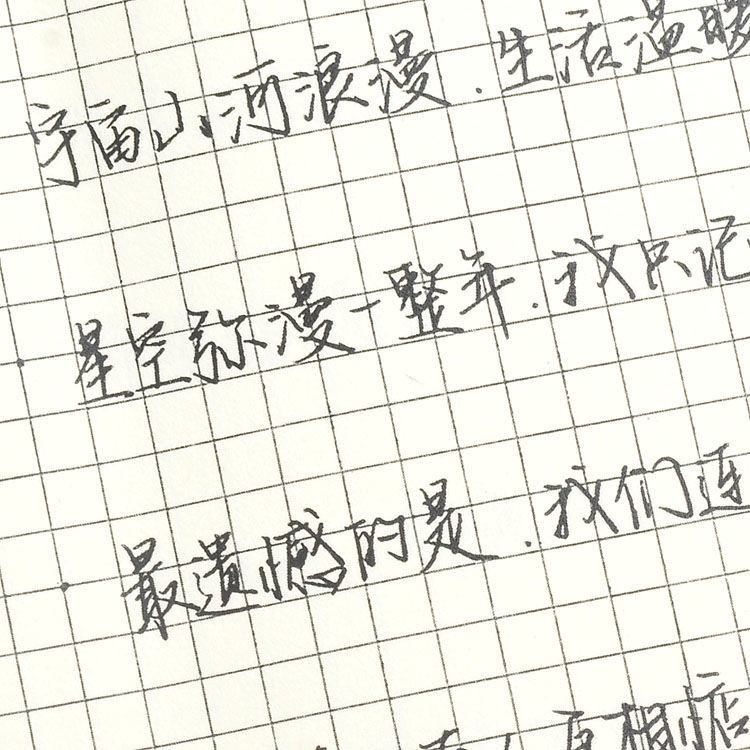 宇宙山河浪漫.生活温暖
星空弥漫一整年.我只记
最遗憾的是.我们连